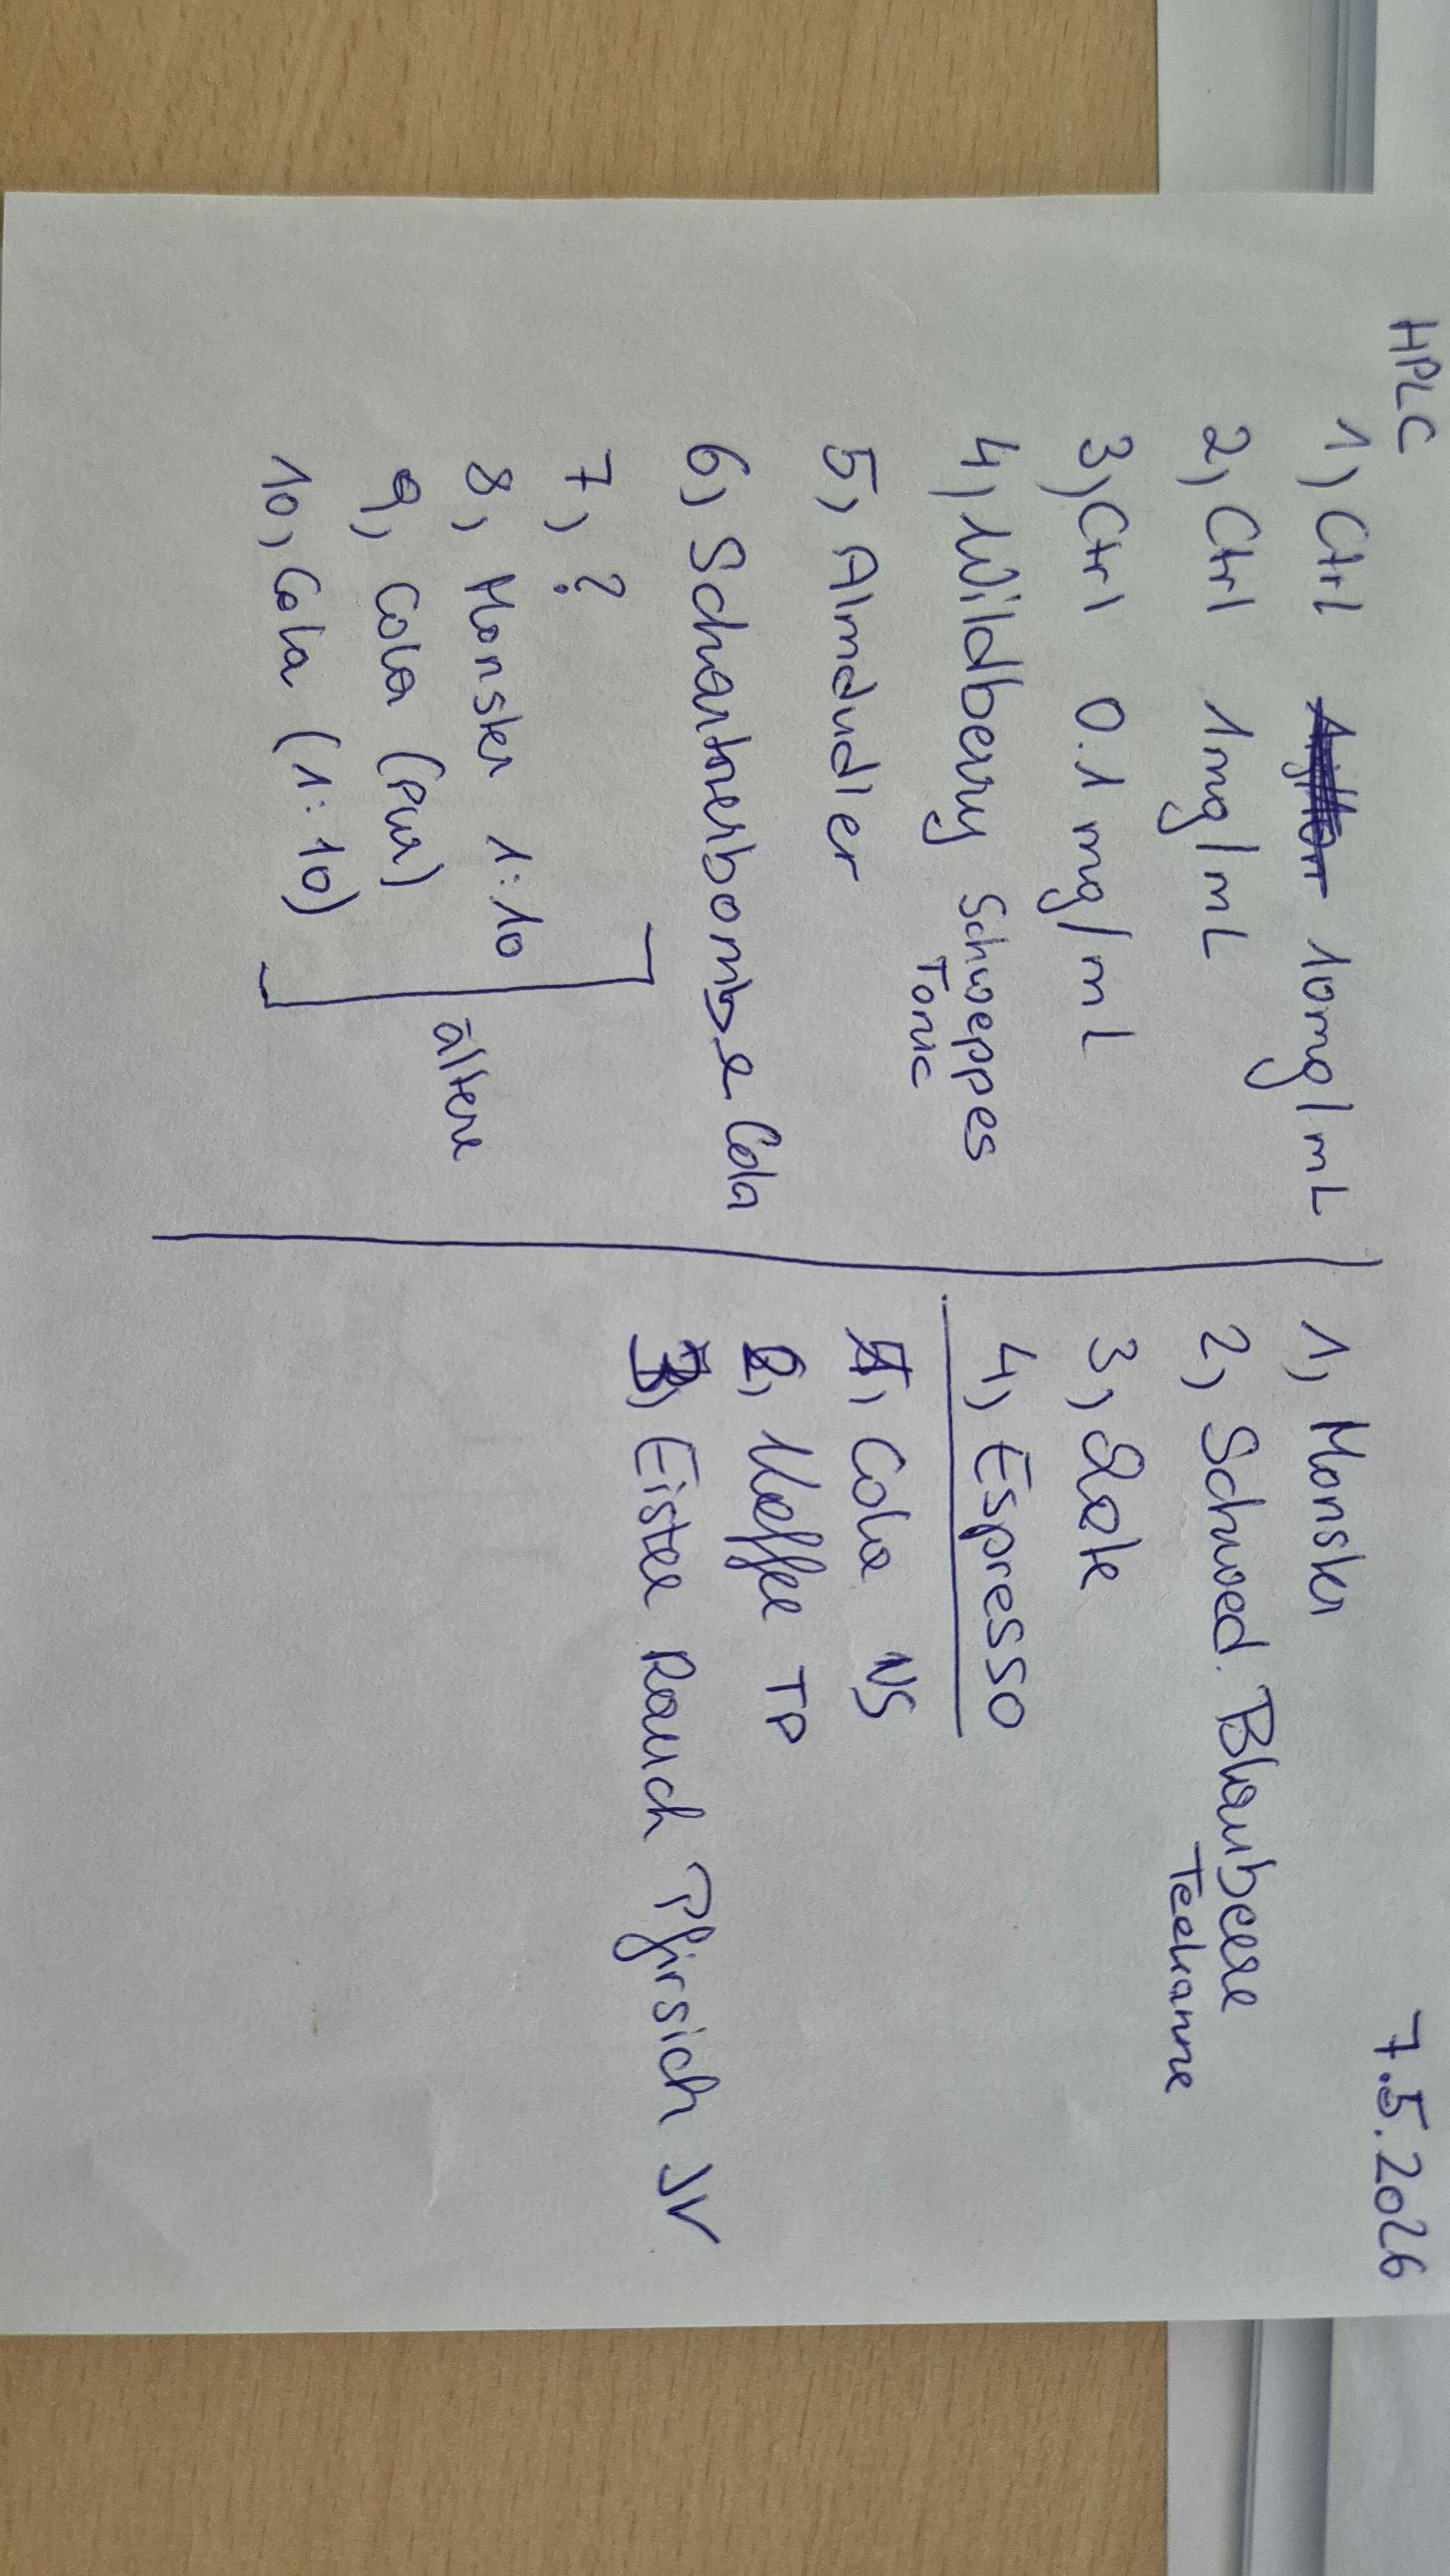 HPLC
7.5.2026
1) Ctrl 10mg/mL
2) Ctrl 1mg/mL
3) Ctrl 0.1 mg/mL
4) Wildberry Schweppes
Tonic
5) Almdudler
6) Schartnerbombe Cola
7) ?
8) Monster 1:10
9) Cola (Pur)
10) Cola (1:10)
ältere
1) Monster
2) Schwed. Blaubeere
Teekanne
3)
4) Espresso
Cola NS
Kaffee TP
Eistee Rauch Pfirsich JV